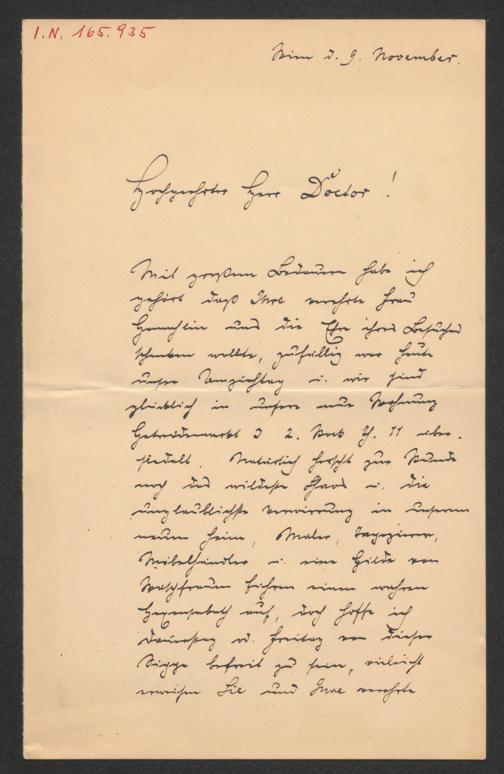 I.N. 165.935
Wien d. 9. November.
Hochgeehrter Herr Doctor!
Mit großem Bedauern habe ich
gehört daß Ihre verehrte Frau
Gemahlin uns die Ehre ihres Besuches
schenken wollte, zufällig war heute
unser Umziehtag u. wir sind
glücklich in unsere neue Wohnung
Getreidemarkt 2. Stock 11 über-
siedelt. Natürlich herrscht zur Stunde
noch das wildeste Chaos u. die
unglaublichste Verwirrung in unserem
neuen Heim, Maler, Tapezierer,
Möbelhändler u. eine Gilde von
Waschfrauen führen einen wahren
Hexensabath auf, doch hoffe ich
Donnerstag od. Freitag von dieser
Sippe befreit zu sein, vielleicht
erweisen Sie und Ihre verehrte